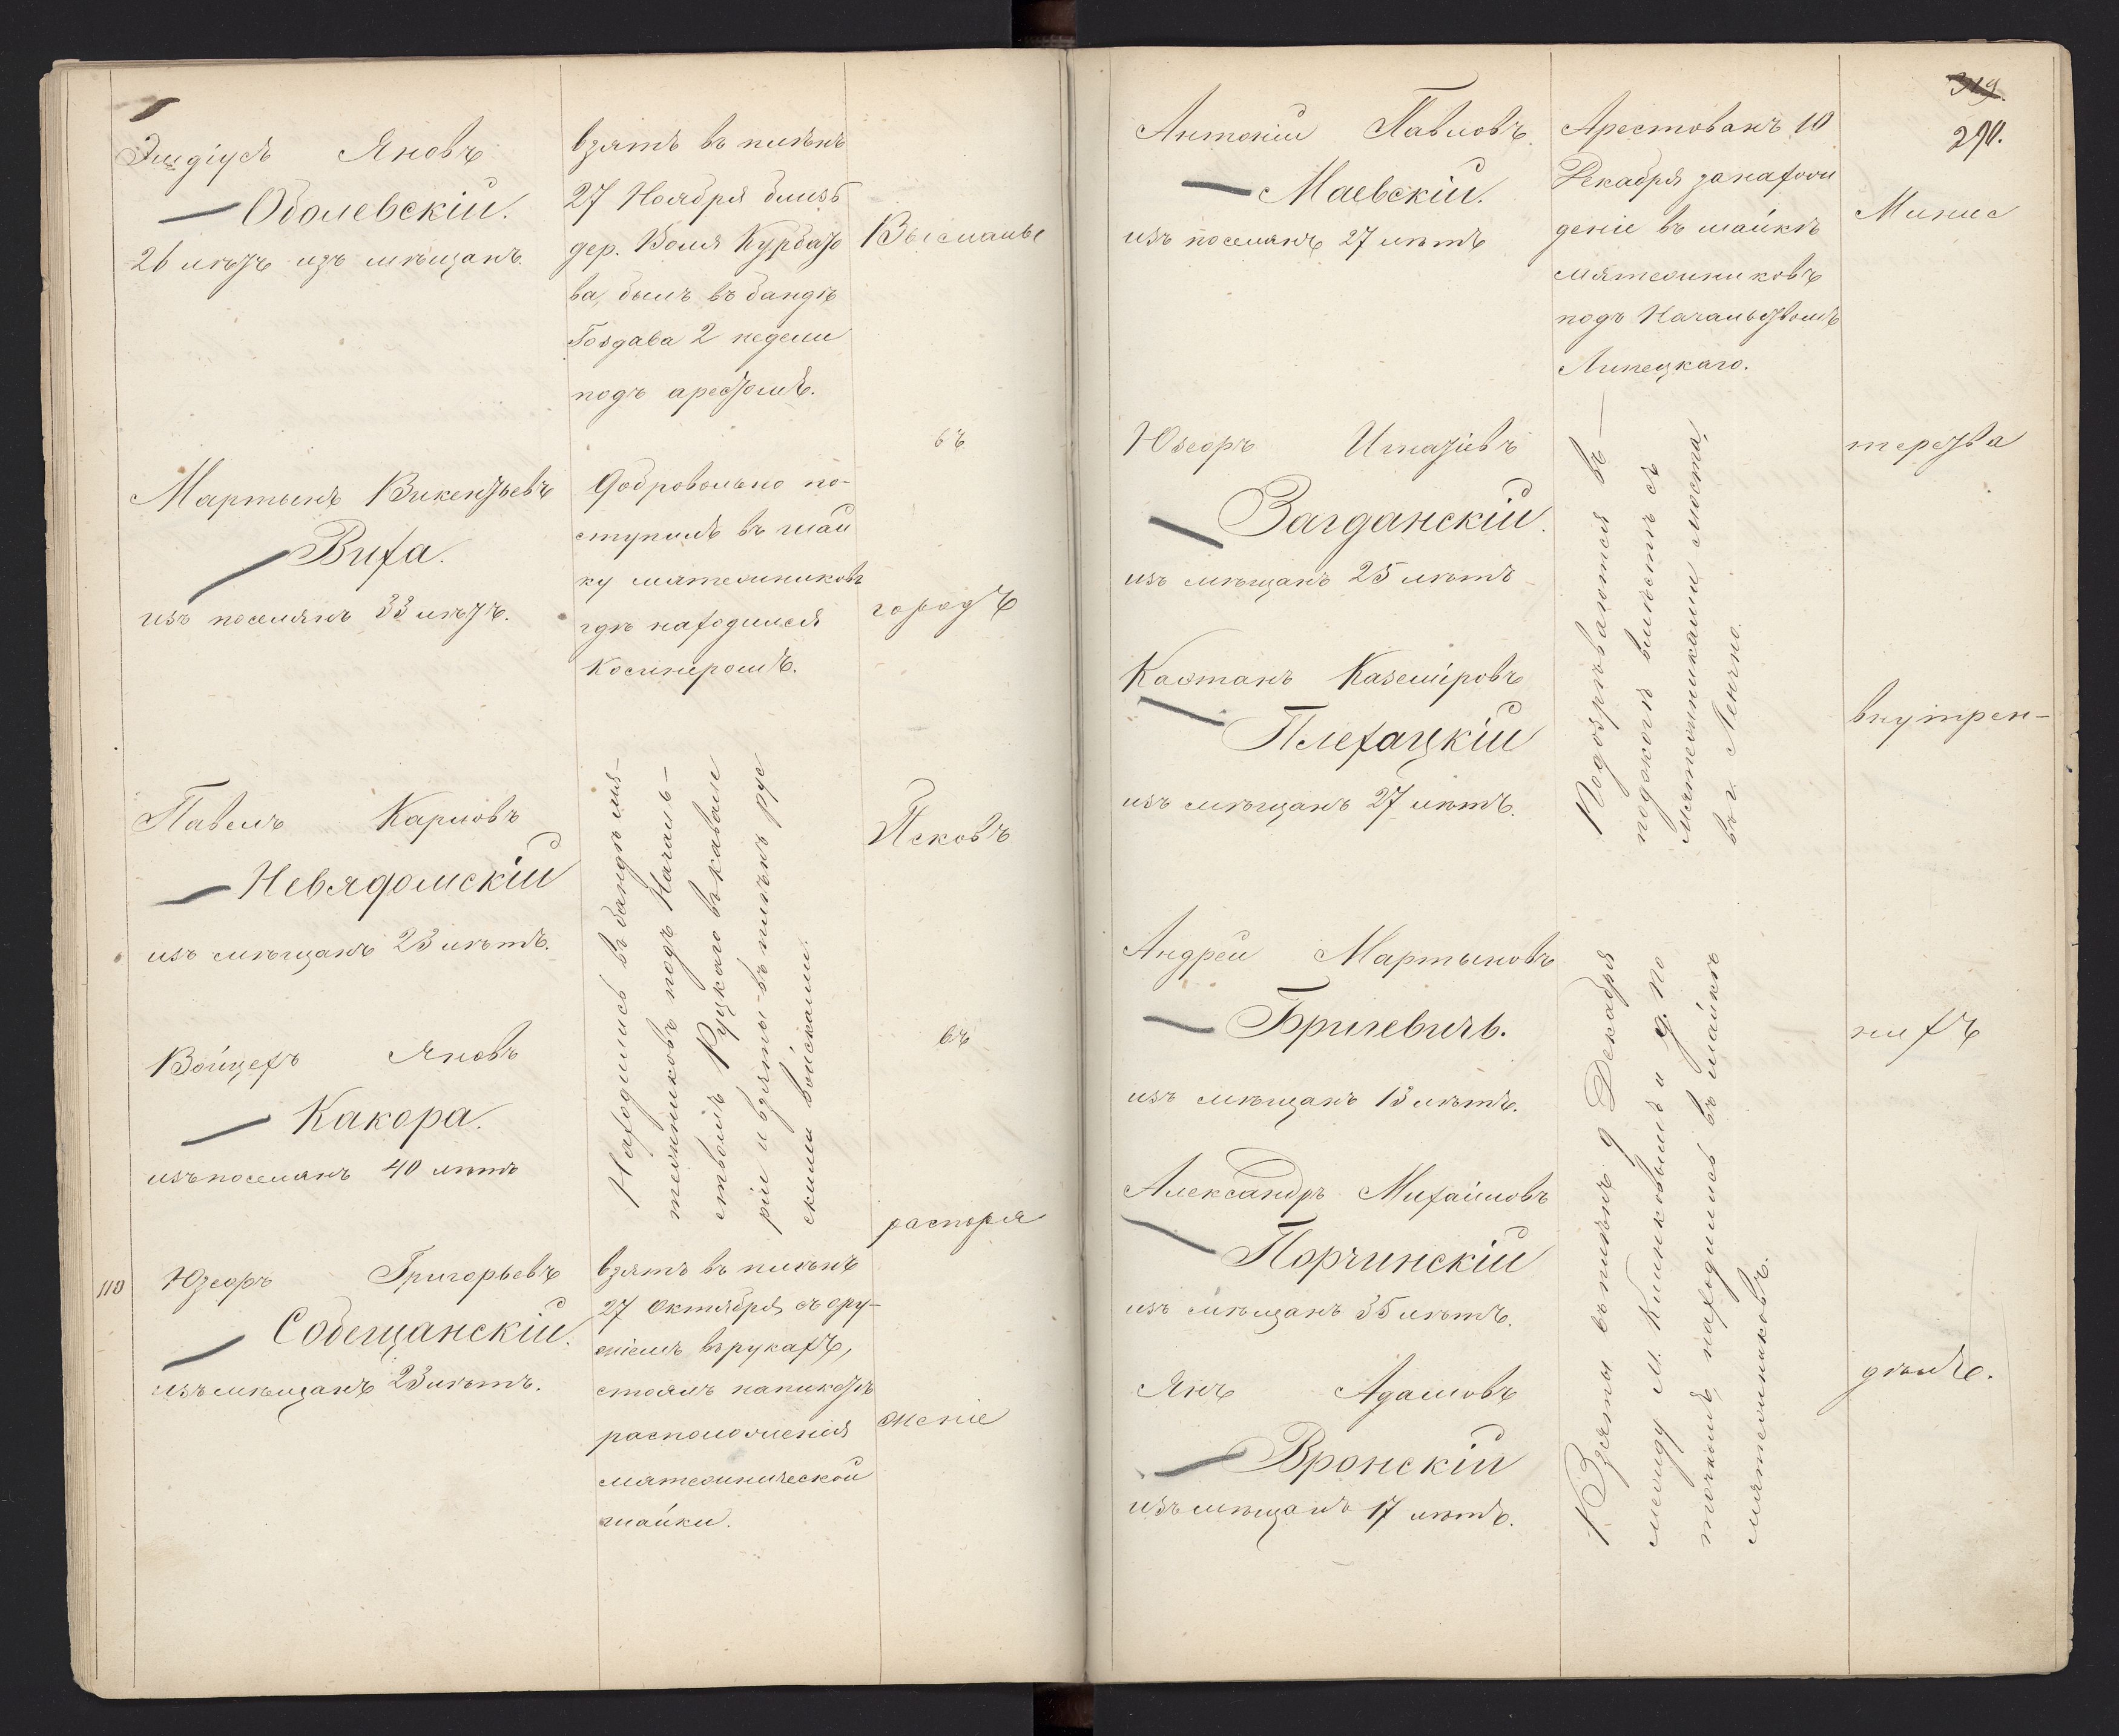 Эгидіусъ Яновъ
Оболевскій.
26 лѣтъ изъ мѣщанъ.
взятъ въ плѣнъ
27 Ноября близъ
дер. Воля Курбато
ва, былъ въ бандѣ
Гоздава 2 недели
подъ арестомъ.
Высланы
въ
городъ
Псковъ
въ
распоря
женіе
Мартынъ Викентьевъ
Виха.
изъ поселянъ 33 лѣтъ.
Добровольно по-
ступилъ въ шай
ку мятежниковъ
гдѣ находился
косинеромъ.
Павелъ Карловъ
Невядомскій
изъ мѣщанъ 23 лѣтъ.
Войцехъ Яновъ
Какора.
изъ поселянъ 40 лѣтъ
Находились въ бандѣ мя-
тежниковъ подъ Началь-
ствомъ Руцкаго въ кавале
ріи и взяты въ плѣнъ рус
скими войсками.
110 Юзефъ Григорьевъ
Собещанскій.
изъ мѣщанъ 23 лѣтъ.
взятъ въ плѣнъ
27 Октября съ ору-
жіемъ въ рукахъ,
стоялъ на пикетѣ
расположенія
мятежнической
шайки.
319.
290.
Антоній Павловъ
Маевскій.
изъ поселянъ 27 лѣтъ
Арестованъ 10
Декабря за нахож
деніе въ шайкѣ
мятежниковъ
подъ Начальствомъ
Липецкаго.
Минис
терства
внутрен-
нихъ
дѣлъ.
Юзефъ Игнатіевъ
Загданскій.
изъ мѣщанъ 25 лѣтъ
Каэтанъ Каземіровъ
Плехацкій
изъ мѣщанъ 27 лѣтъ.
Подозрѣваются въ
поджогѣ вмѣстѣ съ
мятежниками моста,
въ г. Ленчно.
Андрей Мартыновъ
Бриневичъ.
изъ мѣщанъ 13 лѣтъ.
Александръ Михайловъ
Порчинскій
изъ мѣщанъ 35 лѣтъ.
Янъ Адамовъ
Вронскій
изъ мѣщанъ 17 лѣтъ.
Взяты въ плѣнъ 9 Декабря
между м. и д. По
находились въ шайкѣ
мятежниковъ.